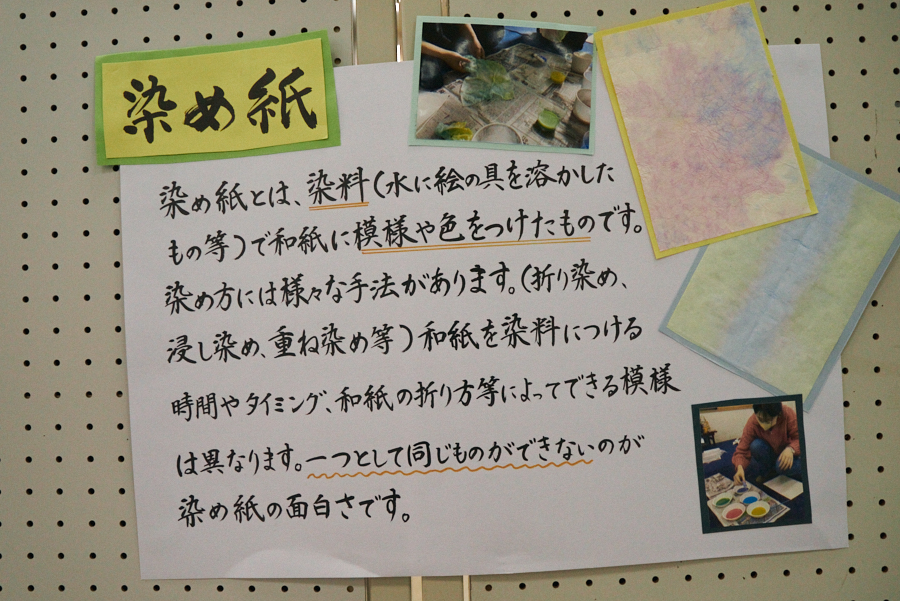 染め紙
染め紙とは、染料(水に絵の具を溶かした
もの等)で和紙に模様や色をつけたものです。
染め方には様々な手法があります。(折り染め、
浸し染め、重ね染め等)和紙を染料につける
時間やタイミング、和紙の折り方等によってできる模様
は異なります。一つとして同じものができないのが
染め紙の面白さです。